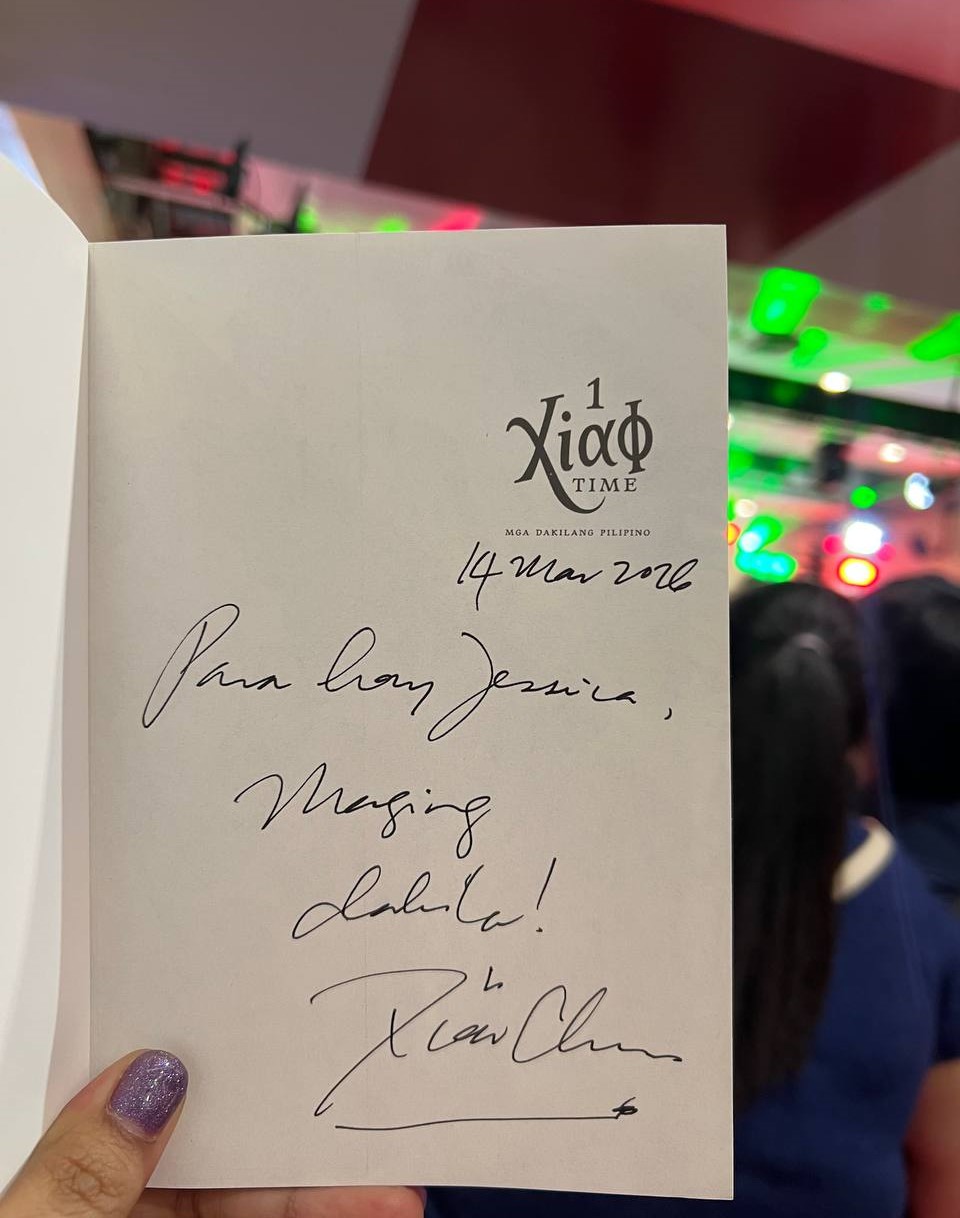 1
XiαΦ
TIME
MGA DAKILANG PILIPINO
14 Mar 2026
Para kay Jessica,
Maging
dakila!
Xiao Chua